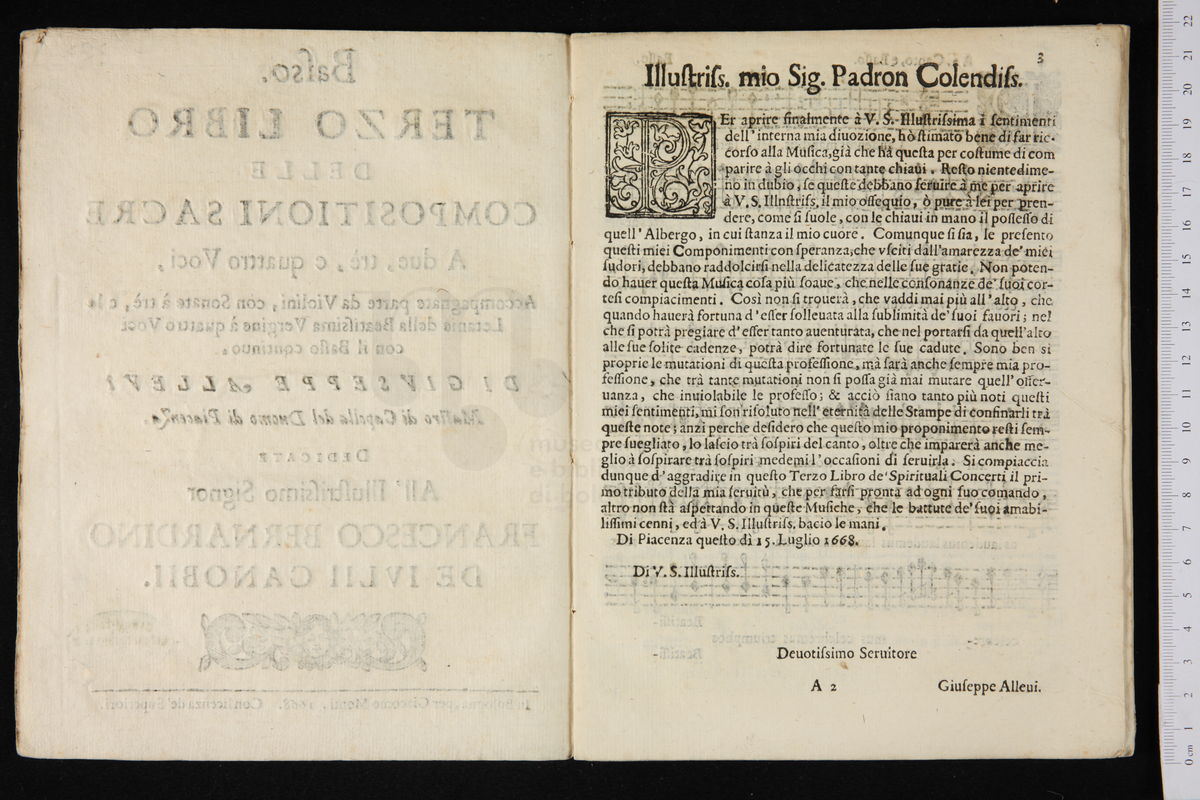 Basso.
TERZO LIBRO
DELLE
COMPOSITIONI SACRE
A due, trè, e quattro Voci,
Accompagnate parte da Violini, con Sonate à trè, e le
Letanie della Beatissima Vergine à quattro Voci
con il Basso continuo.
DI GIVSEPPE ALLEVI
Mastro di Capella del Duomo di Piacenza.
DEDICATE
All' Illustrissimo Signor
FRANCESCO BERNARDINO
DE IVLII CANOBII.
In Bologna, per Giacomo Monti. 1668. Con licenza de' Superiori.
3
Illuſtriſs. mio Sig. Padron Colendiſs.
PEr aprire finalmente à V. S. Illuſtriſsima i ſentimenti
dell' interna mia diuozione, hò ſtimato bene di far ric-
corſo alla Muſica, già che hà queſta per coſtume di com
parire à gli occhi con tante chiaui. Reſto nientedime-
no in dubio, ſe queſte debbano ſeruire à me per aprire
à V. S. Illnſtriſs. il mio oſſequio, ò pure à lei per pren-
dere, come ſi ſuole, con le chiaui in mano il poſſeſſo di
quell' Albergo, in cui ſtanza il mio cuore. Comunque ſi ſia, le preſento
queſti miei Componimenti con ſperanza, che vſciti dall'amarezza de' miei
ſudori, debbano raddolcirſi nella delicatezza delle ſue gratie. Non poten-
do hauer queſta Muſica coſa più ſoaue, che nelle conſonanze de' ſuoi cor-
teſi compiacimenti. Così non ſi trouerà, che vaddi mai più all' alto, che
quando hauerà fortuna d' eſſer ſolleuata alla ſublimità de' ſuoi fauori; nel
che ſi potrà pregiare d' eſſer tanto auenturata, che nel portarſi da quell'alto
alle ſue ſolite cadenze, potrà dire fortunate le ſue cadute. Sono ben sì
proprie le mutationi di queſta profeſſione, mà ſarà anche ſempre mia pro-
feſſione, che trà tante mutationi non ſi poſſa già mai mutare quell' oſſer-
uanza, che inuiolabile le profeſſo; & acciò ſiano tanto più noti queſti
miei ſentimenti, mi ſon riſoluto nell' eternità delle Stampe di confinarli trà
queſte note; anzi perche deſidero che queſto mio proponimento reſti ſem-
pre ſuegliato, lo laſcio trà ſoſpiri del canto, oltre che imparerà anche me-
glio à ſoſpirare trà ſoſpiri medemi l' occaſioni di ſeruirla. Si compiaccia
dunque d' aggradire in queſto Terzo Libro de' Spirituali Concerti il pri-
mo tributo della mia ſeruitù, che per farſi pronta ad ogni ſuo comando,
altro non ſtà aſpettando in queſte Muſiche, che le battute de' ſuoi amabi-
liſſimi cenni, ed à V. S. Illuſtriſs. bacio le mani.
Di Piacenza queſto dì 15. Luglio 1668.
Di V. S. Illuſtriſs.
Deuotiſsimo Seruitore
A 2 Giuſeppe Alleui.